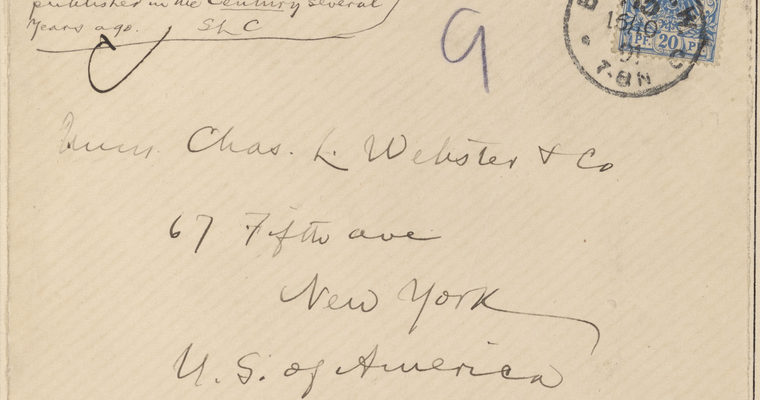 published in the Century several
years ago. SLC
9
Chas. L. Webster & Co
67 Fifth ave
New York
U. S. of America
PF. 20 PF
7-8N